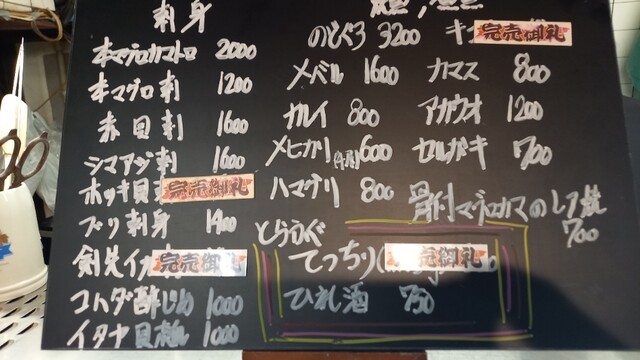 刺身
本マグロカマトロ 2000
本マグロ刺 1200
赤貝刺 1600
シマアジ刺 1600
ホッキ貝 完売御礼
ブリ刺身 1400
剣先イカ 完売御礼
コハダ酢じめ 1000
イタヤ貝 1000
のどぐろ 3200
メバル 1600
カレイ 800
メヒカリ 600
ハマグリ 800
キン 完売御礼
カマス 800
アカウオ 1200
セルガキ 700
骨付マグロカマのレア焼
700
とらふぐ
てっちり 完売御礼
ひれ酒 750